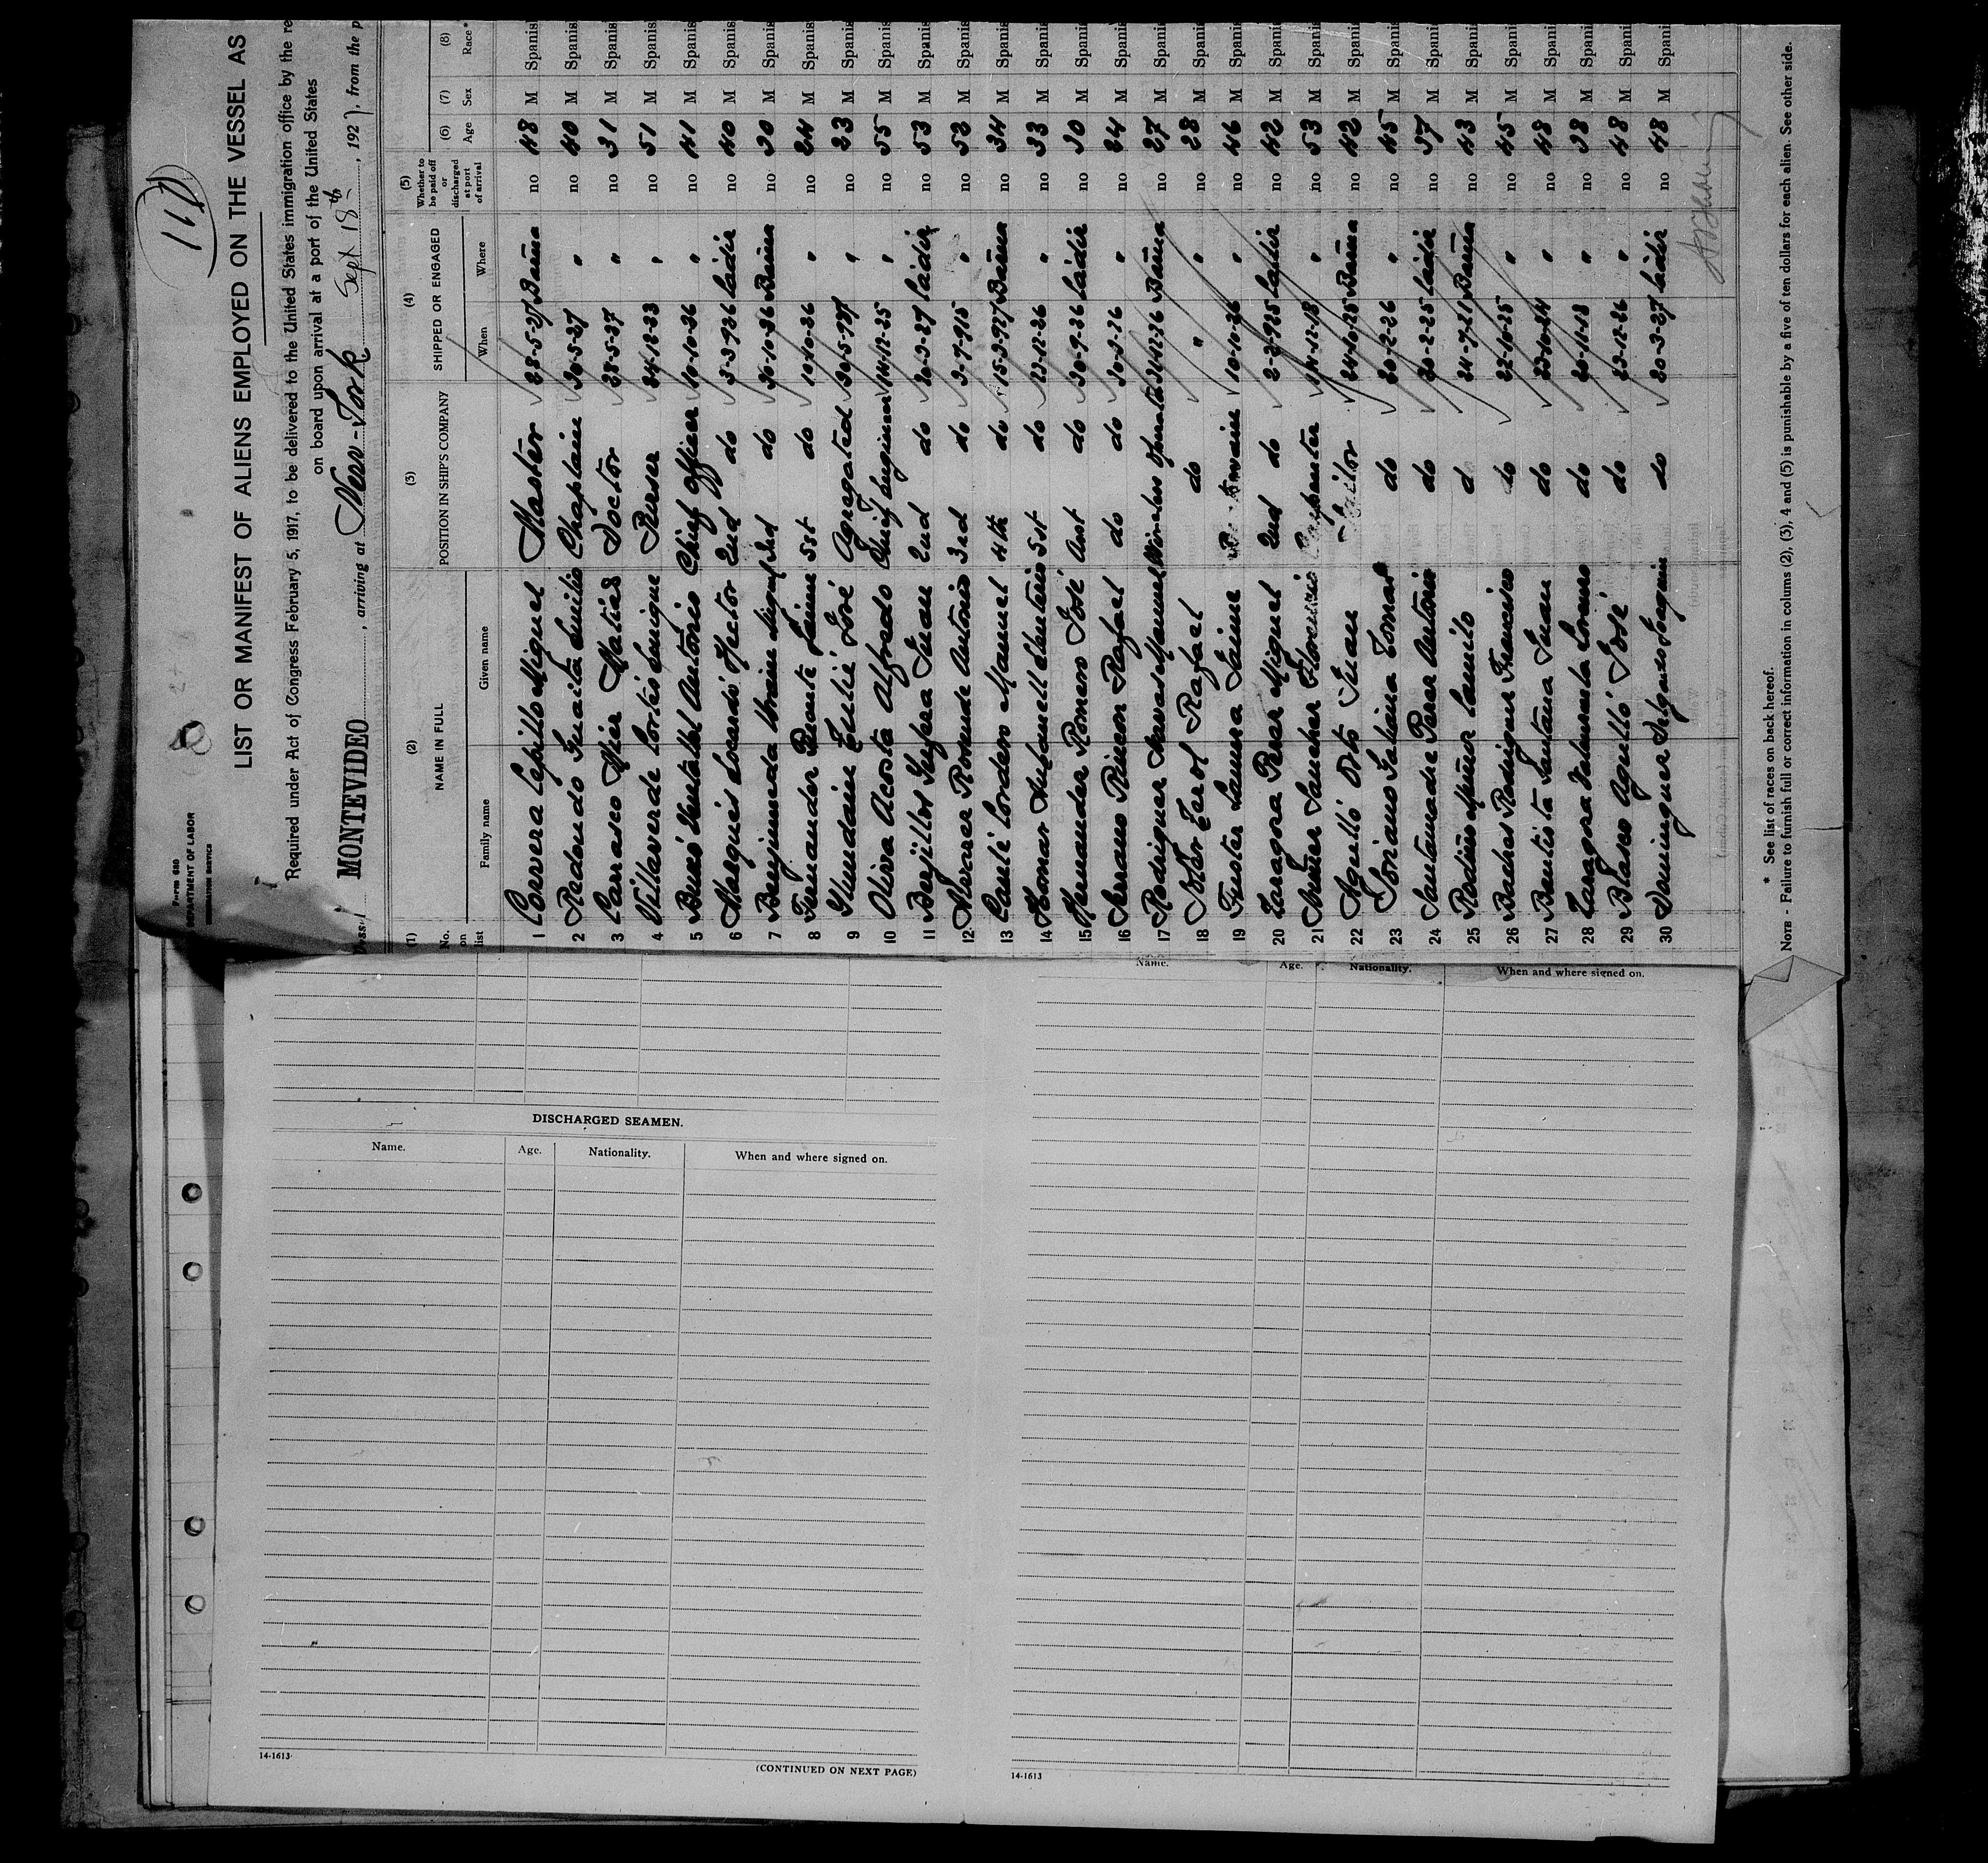 11
Form 680
DEPARTMENT OF LABOR
IMMIGRATION SERVICE
LIST OR MANIFEST OF ALIENS EMPLOYED ON THE VESSEL AS
Required under Act of Congress February 5, 1917, to be delivered to the United States immigration office by the re
on board upon arrival at a port of the United States
Vessel MONTEVIDEO, arriving at New-York Sept 18th, 1927, from the p
(1) (2) (3) (4) (5) (6) (7) (8)
No. on list NAME IN FULL POSITION IN SHIP'S COMPANY SHIPPED OR ENGAGED Whether to be paid off or discharged at port of arrival Age Sex Race*
Family name Given name When Where
1 Corvera Cepillo Miguel Master 28-5-27 Bañna no 48 M Spanis
2 Redondo Emilio Chaplain 30-5-27 " no 40 M Spanis
3 Carrasco Mier Matias Doctor 28-5-27 " no 31 M Spanis
4 Villaverde Cortés Enrique Purser 24-12-23 " no 51 M Spanis
5 Antonio Chief Officer 10-10-26 " no 41 M Spanis
6 Marqués Hector 2nd do 3-3-926 Cadir no 40 M Spanis
7 Benjumeda 3rd do 30-10-26 no 30 M Spanis
8 Fernander Jaime 5st do 10-10-26 " no 24 M Spanis
9 José Agregated 30-5-927 " no 23 M Spanis
10 Oliva Acosta Alfredo Chief Engineer 14-12-25 " no 55 M Spanis
11 Juan 2nd do 20-3-27 Cadir no 53 M Spanis
12 Antonio 3rd do 3-7-915 " no 52 M Spanis
13 Cordero Manuel 4th do 15-3-927 no 34 M Spanis
14 Antonio 5st do 23-12-26 " no 33 M Spanis
15 Hernander Romero José Asst do 30-9-26 Cadir no 30 M Spanis
16 Serrano Rincon Rafael do do " no 24 M Spanis
17 Rodriguer Manuel Wireless 24-12-26 no 27 M Spanis
18 Soler Ferol Rafael do " " no 28 M Spanis
19 Fuster Jaime 10-10-26 " no 46 M Spani
20 Zaragoza Perer Miguel 2nd do 2-2-925 Cadir no 42 M Spani
21 Sancher Florencio Carpenter " no 53 M Spani
22 Agulló Orts Juan Sailor 24-10-25 no 42 M Spani
23 Soriano Galiana Tomas do 20-2-26 " no 45 M Spani
24 Perer Antonio do 20-2-25 Cadir no 37 M Spani
25 Muñor Camilo d 24-7-21 no 43 M Spani
26 Rodriguer Francisco do 22-10-25 " no 45 M Spani
27 Bautista Santana Juan do " no 48 M Spani
28 Zaragoza do 20-11-13 " no 38 M Spani
29 Blasco Agulló José do 23-12-26 " no 48 M Spani
30 Dominguer Delgado Joaquin do 20-3-27 Cadir no 48 M Spani
* See list of races on back hereof.
NOTE - Failure to furnish full or correct information in colums (2), (3), 4 and (5) is punishable by a five of ten dollars for each alien - See other side.
DISCHARGED SEAMEN.
Name. Age. Nationality. When and where signed on.
14-1613
(CONTINUED ON NEXT PAGE)
Name. Age. Nationality. When and where signed on.
14-1613